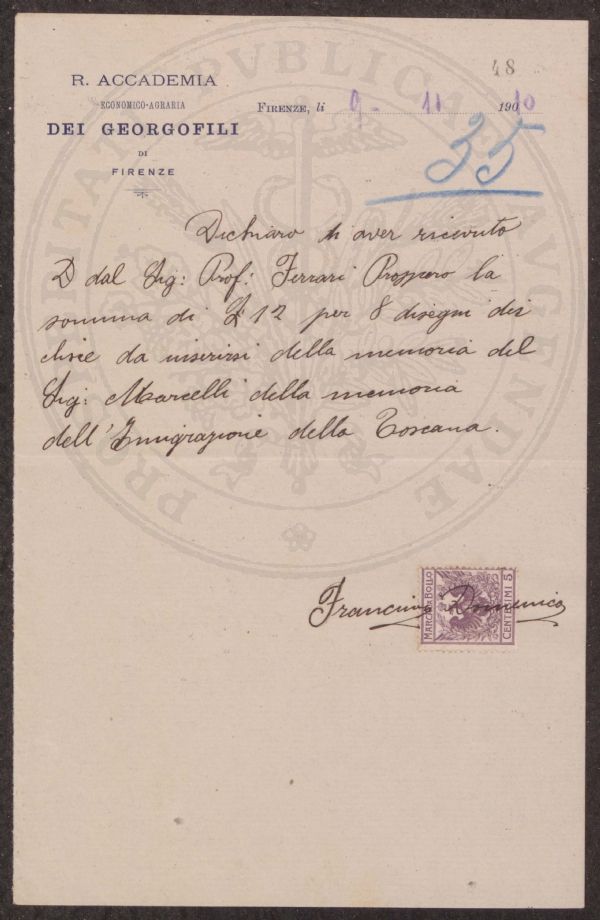 48
R. ACCADEMIA
ECONOMICO-AGRARIA
DEI GEORGOFILI
DI
FIRENZE
FIRENZE, li 9 - 11 190 10
35
Dichiaro di aver ricevuto
D dal Sig: Prof: Ferrari Prospero la
somma di £ 12 per 8 disegni dei
clisie da inserirsi della memoria del
Sig: Marcelli della memoria
dell'Inmigrazione della Toscana.
Francini Domenico
MARCA DA BOLLO
CENTESIMI 5
PROSPERITATI PVBLICAE AVGENDAE